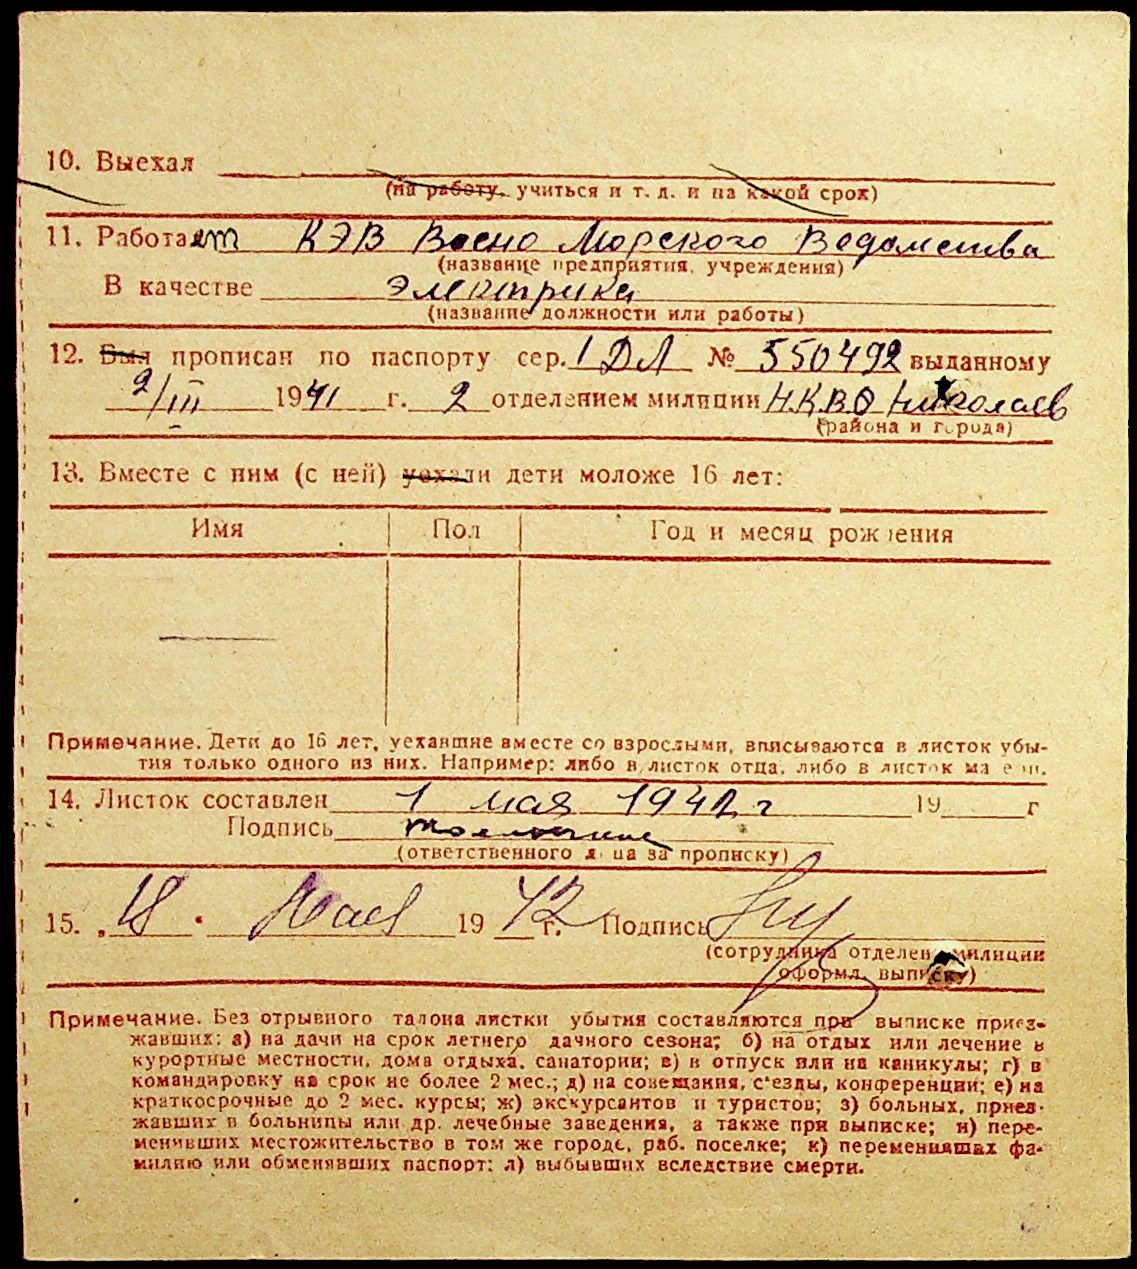 10. Выехал
(на работу, учиться и т. д. и на какой срок)
11. Работает КЭВ Военно Морского Ведомства
(название предприятия, учреждения)
В качестве Электрика
(название должности или работы)
12. Был прописан по паспорту сер. 1 ДЛ № 550492 выданному
2/III 1941 г. 2 отделением милиции Н.К.В.Д Николаев
(района и города)
13. Вместе с ним (с ней) уехали дети моложе 16 лет:
Имя Пол Год и месяц рождения
Примечание. Дети до 16 лет, уехавшие вместе со взрослыми, вписываются в листок убы-
тия только одного из них. Например: либо в листок отца, либо в листок матери.
14. Листок составлен 1 мая 1942 г 19 г
Подпись
(ответственного лица за прописку)
15. „18 . Мая 1942 г. Подпись
(сотрудника отделен. милиции
оформл. выписку)
Примечание. Без отрывного талона листки убытия составляются при выписке приез-
жавших: а) на дачи на срок летнего дачного сезона; б) на отдых или лечение в
курортные местности, дома отдыха, санатории; в) в отпуск или на каникулы; г) в
командировку на срок не более 2 мес.; д) на совещания, с'езды, конференции; е) на
краткосрочные до 2 мес. курсы; ж) экскурсантов и туристов; з) больных, приез-
жавших в больницы или др. лечебные заведения, а также при выписке; и) пере-
менивших местожительство в том же городе, раб. поселке; к) переменивших фа-
милию или обменявших паспорт; л) выбывших вследствие смерти.